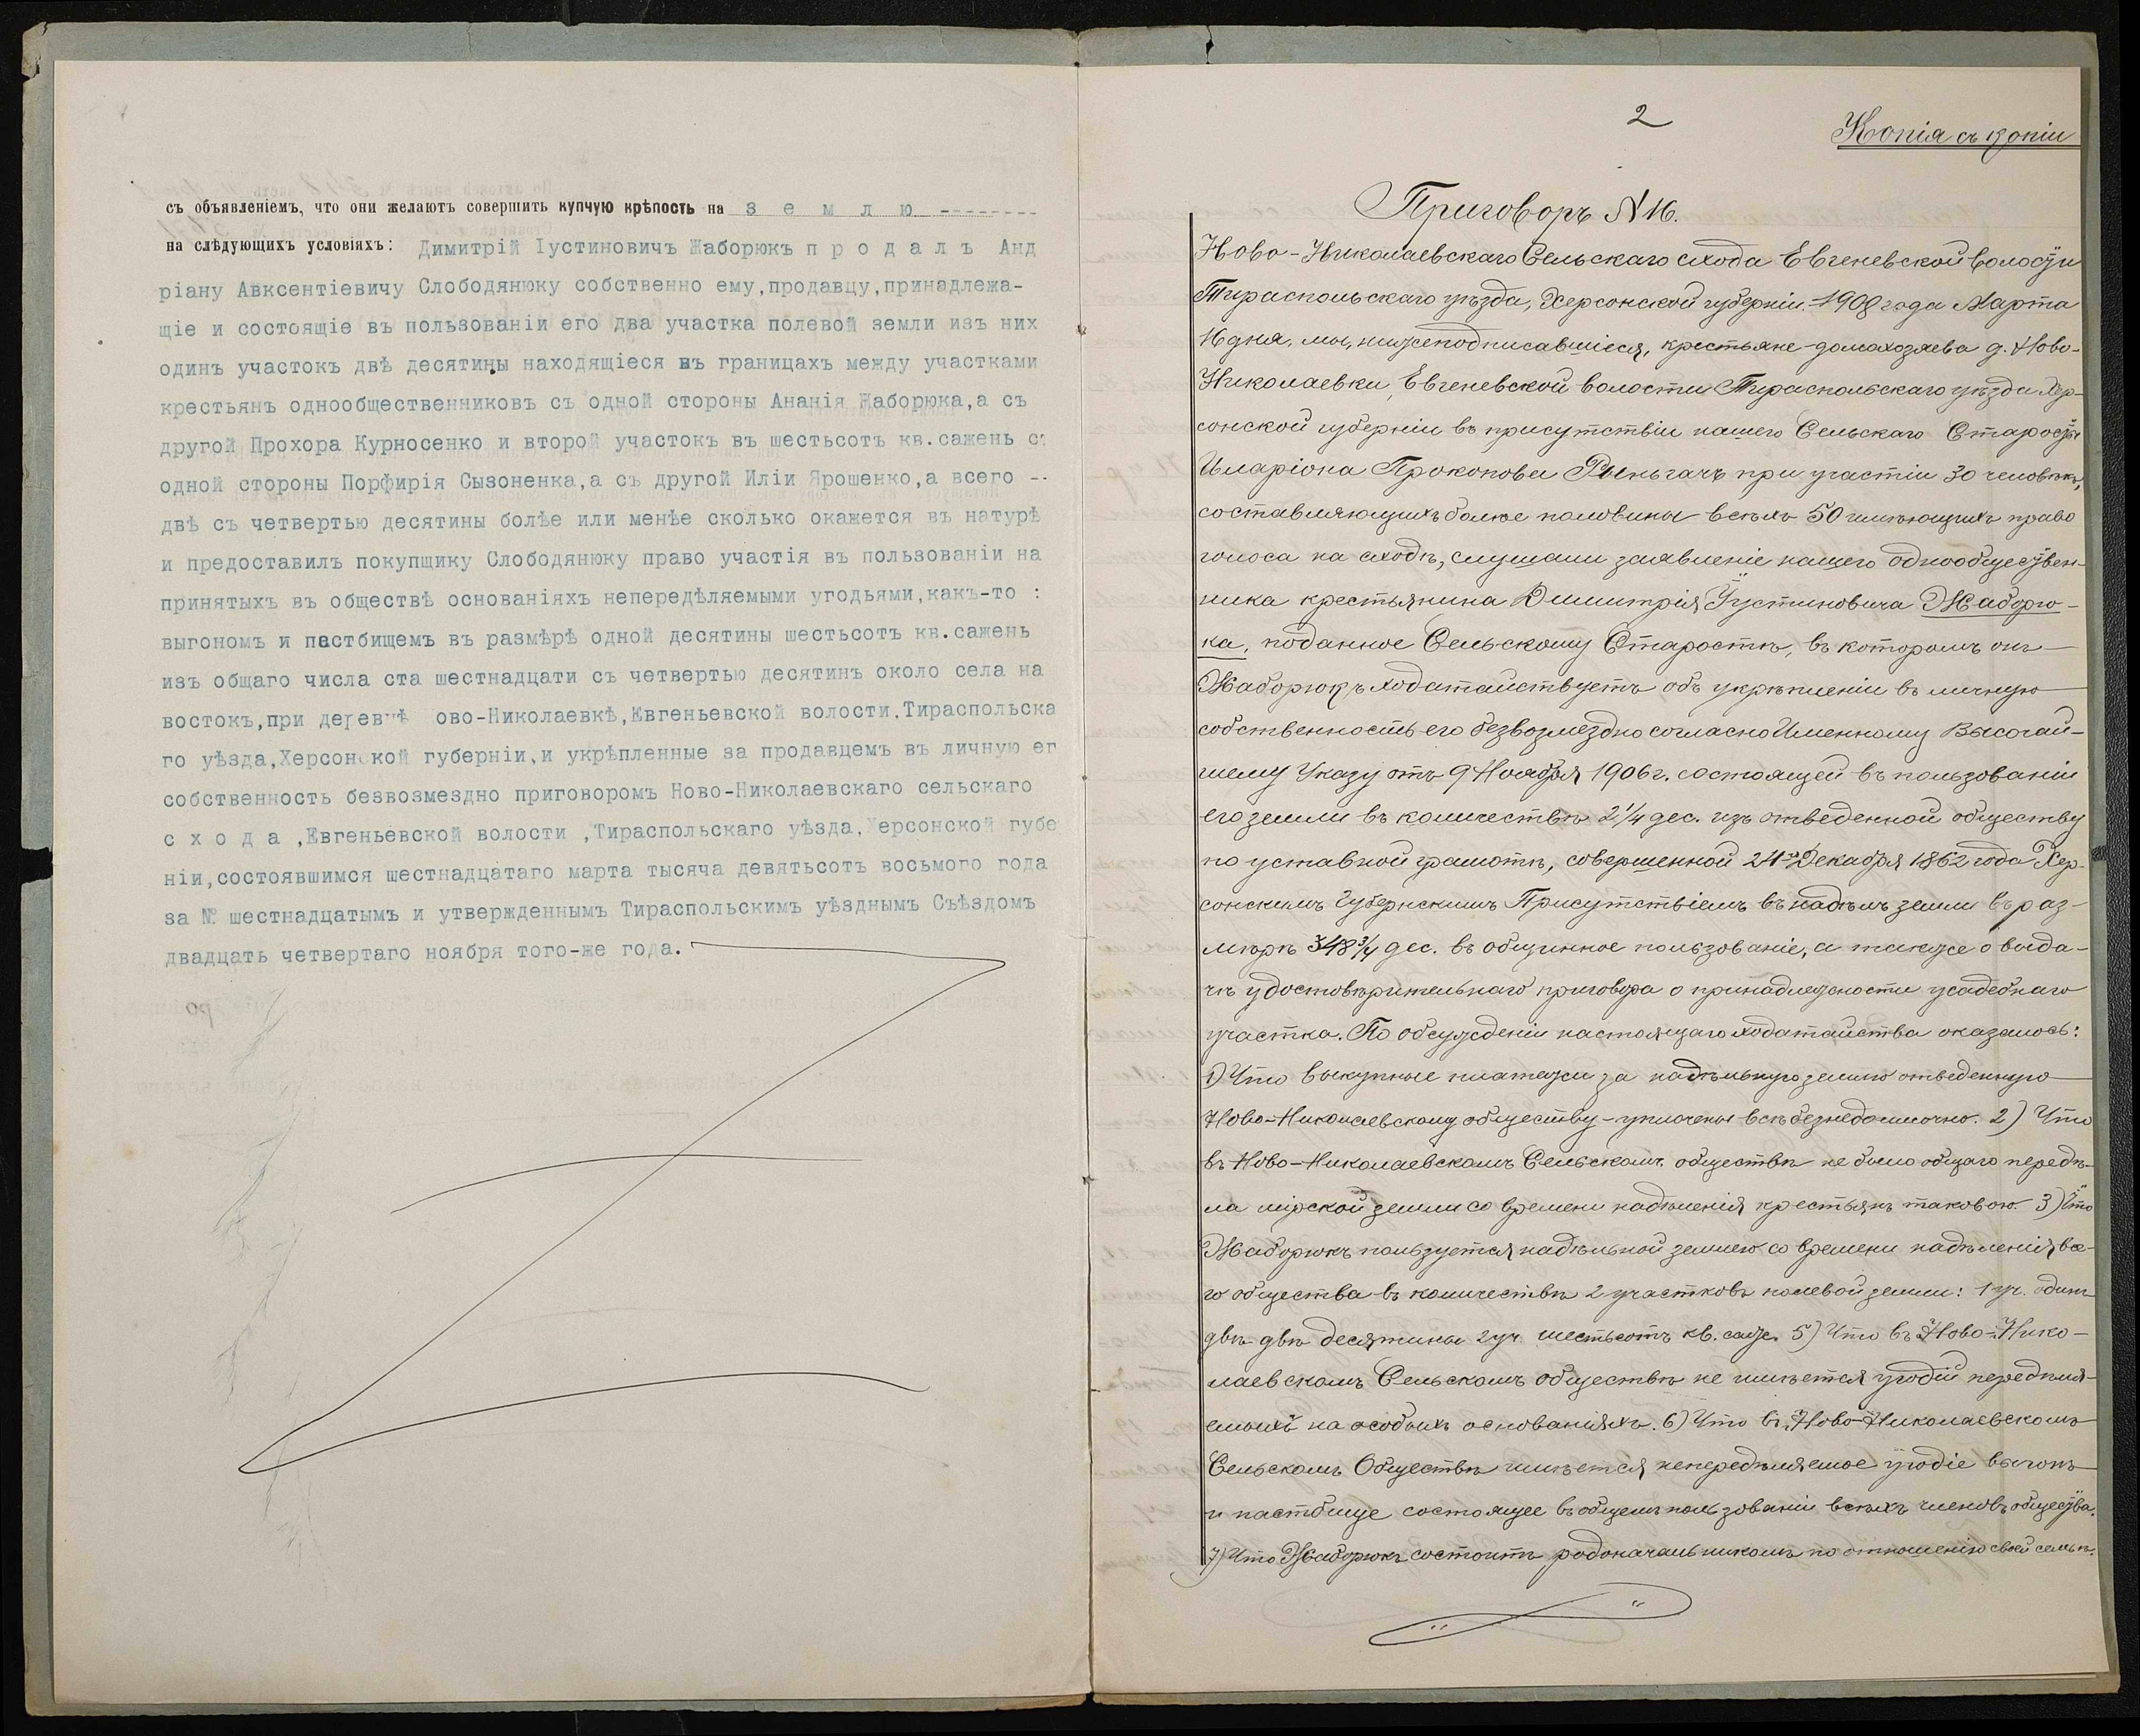 съ объявленіемъ, что они желаютъ совершить купчую крѣпость на з е м л ю --------
на слѣдующихъ условіяхъ: Димитрій Іустиновичъ Жаборюкъ п р о д а л ъ Анд
ріану Авксентіевичу Слободянюку собственно ему,продавцу,принадлежа-
щіе и состоящіе въ пользованіи его два участка полевой земли изъ них
одинъ участокъ двѣ десятины находящіеся въ границахъ между участками
крестьянъ однообщественниковъ съ одной стороны Ананія Жаборюка,а съ
другой Прохора Курносенко и второй участокъ въ шестьсотъ кв.сажень съ
одной стороны Порфирія Сызоненка,а съ другой Иліи Ярошенко,а всего --
двѣ съ четвертью десятины болѣе или менѣе сколько окажется въ натурѣ
и предоставилъ покупщику Слободянюку право участія въ пользованіи на
принятыхъ въ обществѣ основаніяхъ непередѣляемыми угодьями,какъ-то :
выгономъ и пастбищемъ въ размѣрѣ одной десятины шестьсотъ кв.сажень
изъ общаго числа ста шестнадцати съ четвертью десятинъ около села на
востокъ,при деревнѣ ово-Николаевкѣ,Евгеньевской волости,Тираспольска
го уѣзда,Херсонской губерніи,и укрѣпленные за продавцемъ въ личную ег
собственность безвозмездно приговоромъ Ново-Николаевскаго сельскаго
с х о д а ,Евгеньевской волости ,Тираспольскаго уѣзда,Херсонской губе
ніи,состоявшимся шестнадцатаго марта тысяча девятьсотъ восьмого года
за № шестнадцатымъ и утвержденнымъ Тираспольскимъ уѣзднымъ Съѣздомъ
двадцать четвертаго ноября того-же года.
2
Копія съ копіи
Приговоръ № 16.
Ново-Николаевскаго Сельскаго схода Евгеневской волости
Тираспольскаго уѣзда, Херсонской губерніи. 1908 года Марта
16 дня, мы, нижеподписавшіеся, крестьяне-домохозяева д. Ново-
Николаевки, Евгеневской волости Тираспольскаго уѣзда Хер-
сонской губерніи въ присутствіи нашего Сельскаго Старосты
Иларіона Прокопова при участіи 30 человѣкъ,
составляющихъ болѣе половины всѣхъ 50 имѣющихъ право
голоса на сходѣ, слушали заявленіе нашего однообществен-
ника крестьянина Димитрія Іустиновича Жаборю-
ка, поданное Сельскому Старостѣ, въ которомъ онъ
Жаборюкъ ходатайствуетъ объ укрѣпленіи въ личную
собственность его безвозмездно согласно Именному Высочай-
шему Указу отъ 9 Ноября 1906 г. состоящей въ пользованіи
его земли въ количествѣ 2 1/4 дес. изъ отведенной обществу
по уставной грамотѣ, совершенной 24го Декабря 1862 года Хер-
сонскимъ Губернскимъ Присутствіемъ въ надѣлъ земли въ раз-
мѣрѣ 348 3/4 дес. въ общинное пользованіе, а также о выда-
чѣ удостовѣрительнаго приговора о принадлежности усадебнаго
участка. По обсужденіи настоящаго ходатайства оказалось:
1) Что выкупные платежи за надѣльную землю отведенную
Ново-Николаевскому обществу - уплочены всѣ безнедоимочно. 2) Что
въ Ново-Николаевскомъ Сельскомъ обществѣ не было общаго передѣ-
ла мірской земли со времени надѣленія крестьянъ таковою. 3) Что
Жаборюкъ пользуется надѣльной землею со времени надѣленія все-
го общества въ количествѣ 2 участковъ полевой земли: 1 уч. одинъ
двѣ двѣ десятины 2 уч. шестьсотъ кв. саж. 5) Что въ Ново-Нико-
лаевскомъ Сельскомъ обществѣ не имѣется угодій передѣля-
емыхъ на особыхъ основаніяхъ. 6) Что въ Ново-Николаевскомъ
Сельскомъ Обществѣ имѣется непередѣляемое угодіе выгонъ
и пастбище состоящее въ общемъ пользованіи всѣхъ членовъ общества.
7) Что Жаборюкъ состоитъ родоначальникомъ по отношенію своей семьѣ.